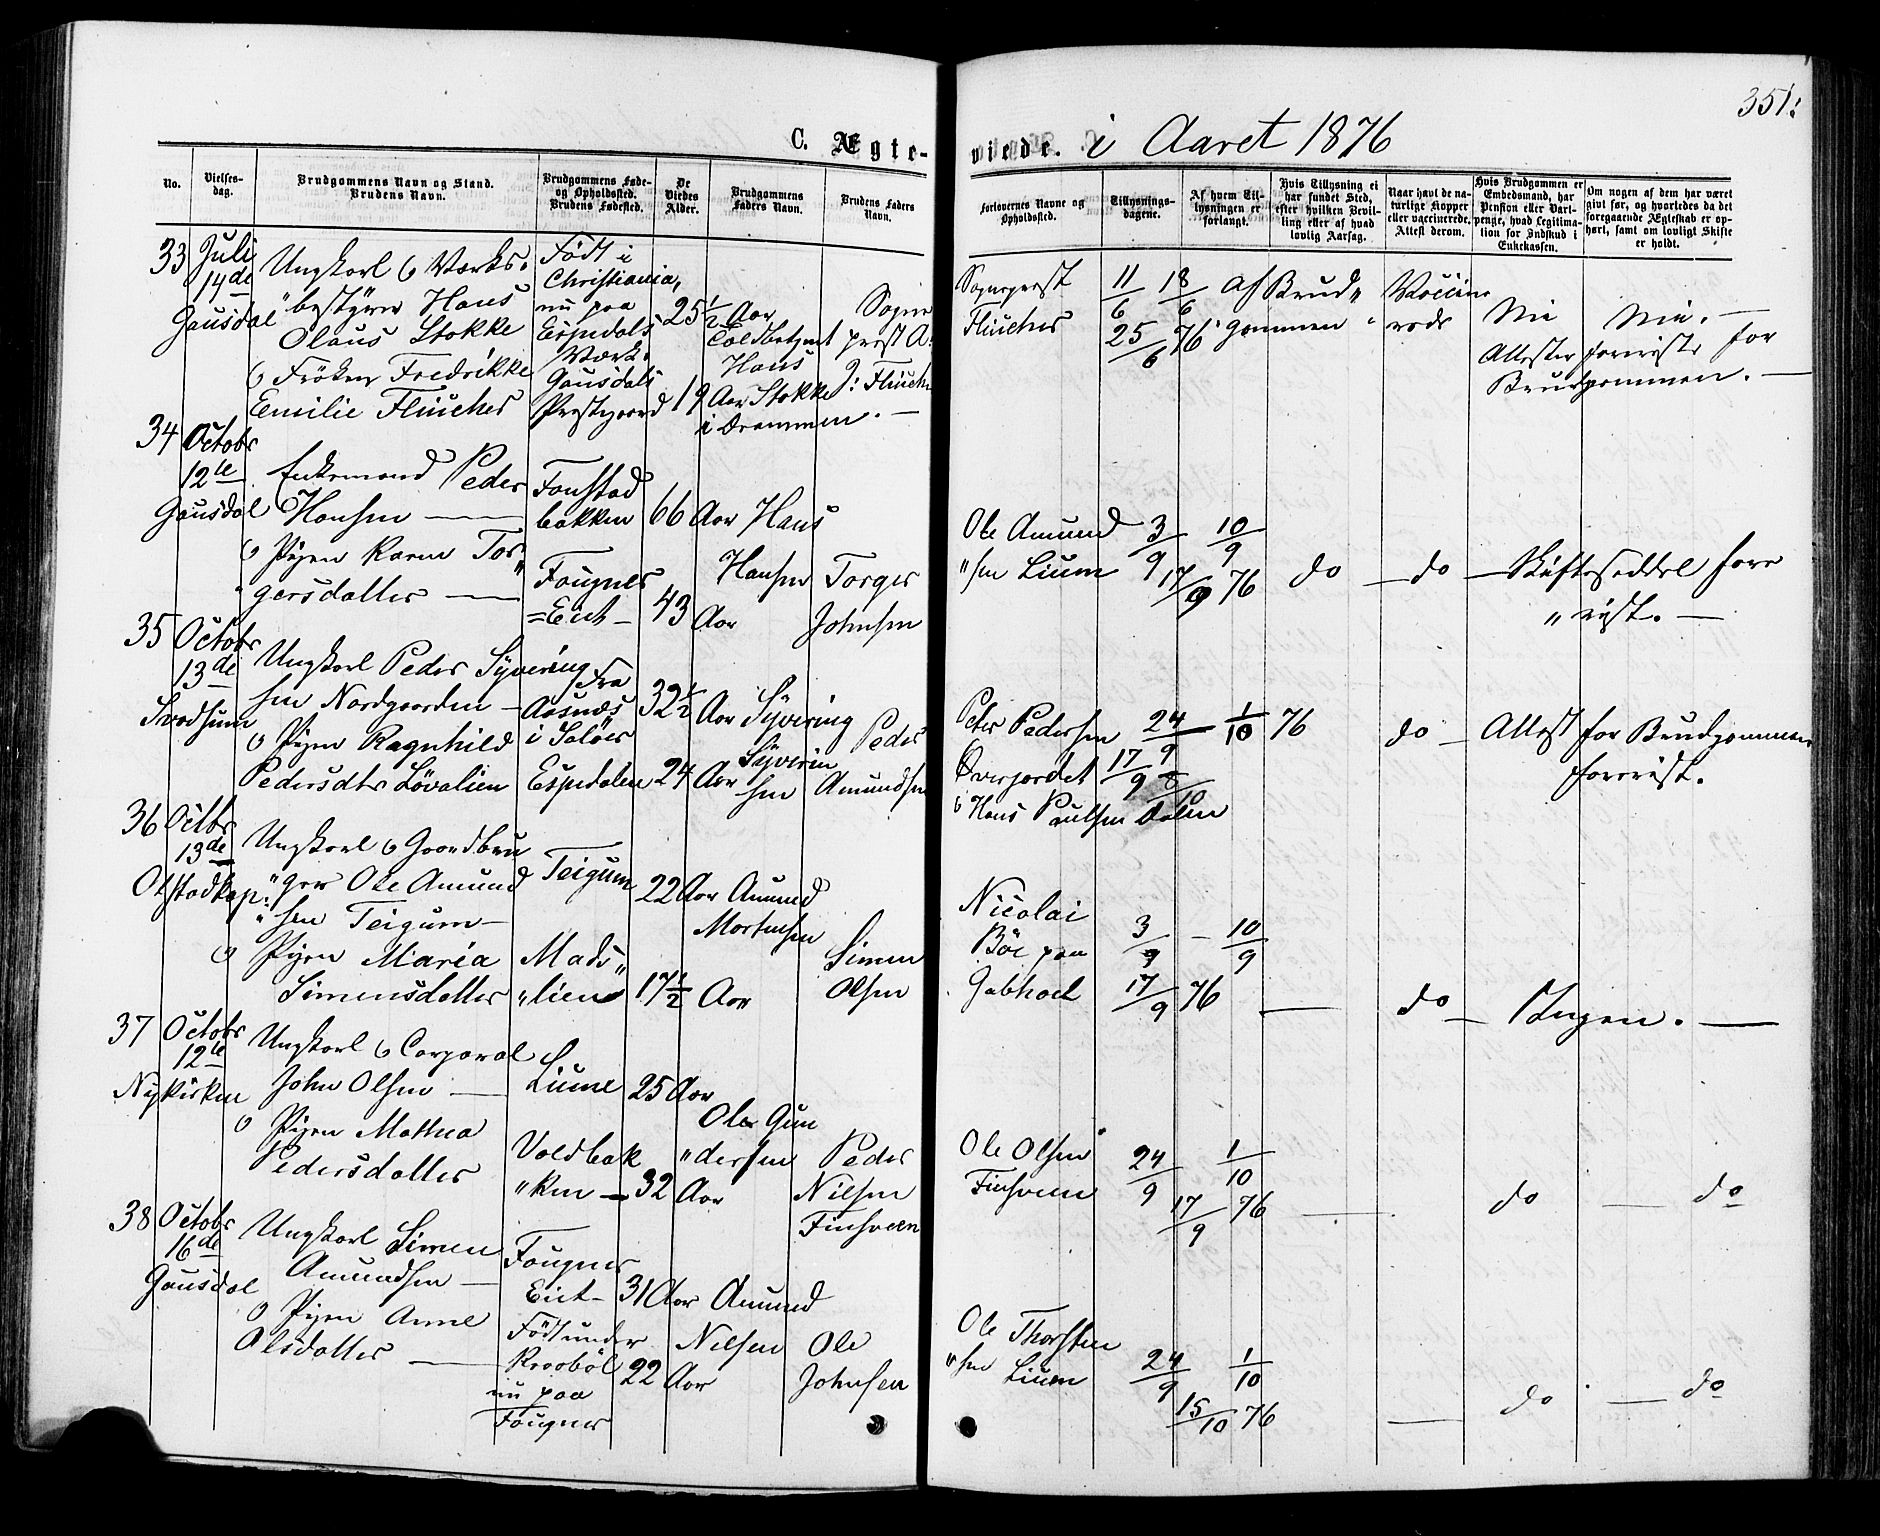 351.
C. Ægte-
viede. i Aaret 1876
No.
Vielses-
dag.
Brudgommens Navn og Stand.
Brudens Navn.
Brudgommens Føde-
og Opholdssted.
Brudens Fødested.
De
Viedes
Alder.
Brudgommens
Faders Navn.
Brudens Faders
Navn.
Forlovernes Navne og
Opholdssted.
Tillysnings-
dagene.
Af hvem Til-
lysningen er
forlangt.
Hvis Tillysning ei
har fundet Sted,
efter hvilken Bevil-
ling eller af hvad
lovlig Aarsag.
Naar havt de na-
turlige Kopper
eller vaccinerede.
Attest derom.
Hvis Brudgommen er
Embedsmand, har
Pension eller Vart-
penge, hvad Legitima-
tion for Indskud i
Enkekassen.
Om nogen af dem har været
givt før, og hvorledes da det
foregaaende Ægteskab er op-
hørt, samt om lovligt Skifte
er holdt.
33
Juli
14de
Gausdal
Ungkarl & Værks-
"bestyrer Hans
Olaus Stokke
& Frøken Fredrikke
Emilie Flüscher
Født i
Christiania,
nu paa
Espedals
Værk.
Gausdals
Præstegaard
25½ Aar
19 Aar
Toldbetjent
Hans
Stokke
i Drammen
Sogne
præst A.
J. Flüscher
Sogneprest
Flüscher
11/6 18/6
25/6 76
af Brud"
gommen
Vaccine
rede
Nei Nei. —
Attester foreviste for
Brudgommen. —
34
Octobr
12te
Gausdal
Enkemand Peder
Hansen —
& Pigen Karen Tor"
gersdatter —
Fonstad
bakken
Fougner
=Eiet —
66 Aar
43 Aar
Hans
Hansen
Torger
Johnsen
Ole Amund
"sen Lium
3/9 10/9
17/9 76
do — do — Skifteseddel fore
"vist. —
35
Octobr
13de
Svadsum
Ungkarl Peder Syvering
sen Nordgaarden —
& Pigen Ragnhild
Pedersdtr Løvalien
Fra
Aasnæs
i Soløer
Espedalen
32½ Aar
24 Aar
Syvering
Syverin
sen
Peder
Amundsen
Peter Pedersen
Øverjordet
& Hans Paulsen Dalen
24/9 — 1/10 76
17/9 8/10
do — Attest for Brudgommen
forevist.
36
Octbr
13de
Olstadkap:
Ungkarl & Gaardbru
"ger Ole Amund
"sen Teigum —
& Pigen Maria
Simensdatter
Teigum
Mads"
"lien
22 Aar
17½ Aar
Amund
Mortensen
Simen
Olsen
Nicolai
Bøe paa
3/9 — 10/9
17/9 76
— do — Ingen. —
37
Octobr
12te
Nykirken
Ungkarl & Corporal
John Olsen —
& Pigen Mathea
Pedersdatter
Liume
Voldbak
"ken —
25 Aar
32 Aar
Ole Gun
"dersen
Peder
Nilsen
Finsveen
Ole Olsen
Finsveen
24/9 1/10
17/9 76
— do — do
38
Octobr
16de
Gausdal
Ungkarl Simen
Amundsen —
& Pigen Anne
Olsdatter —
Fougner
Eiet —
Født under
Kraabøl
nu paa
Fougner
31 Aar
22 Aar
Amund
Nilsen
Ole
Johnsen
Ole Thorsten
"sen Lium
24/9 1/10
15/10 76
— do — do